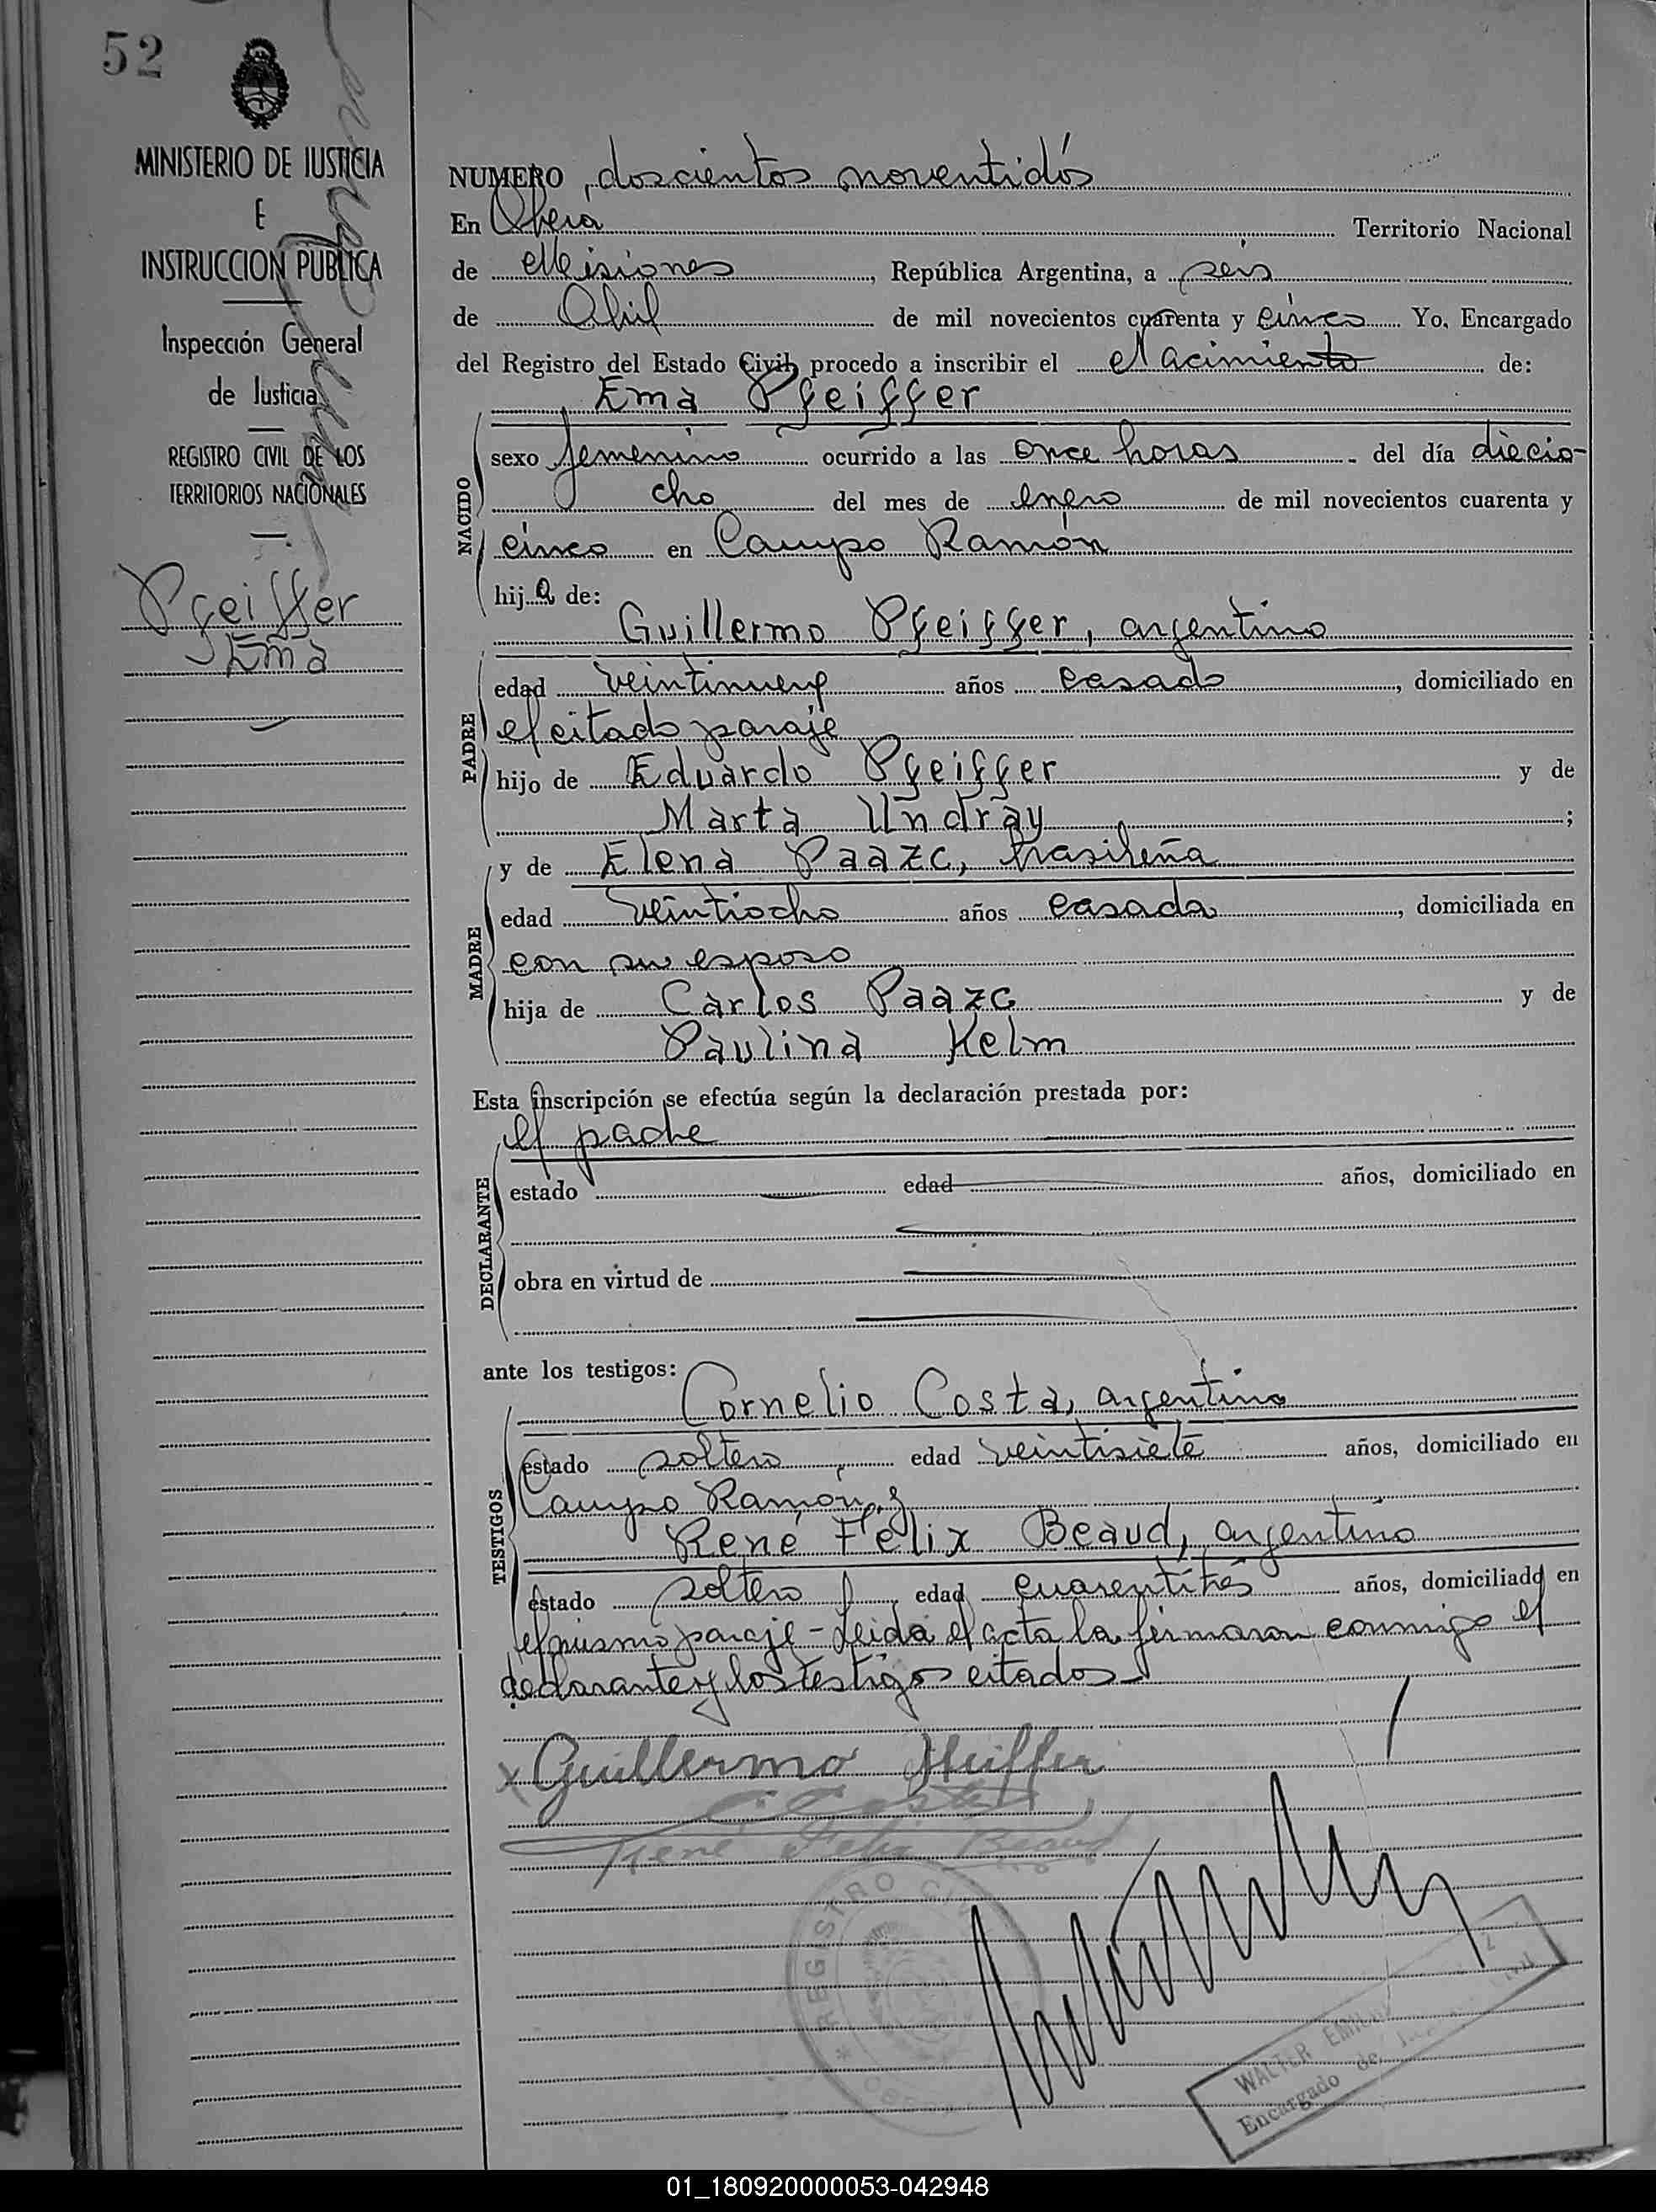 52
MINISTERIO DE JUSTICIA
E
INSTRUCCION PUBLICA
Inspección General
de Justicia
REGISTRO CIVIL DE LOS
TERRITORIOS NACIONALES
Pfeiffer
Ema
NUMERO doscientos noventidós
En Oberá Territorio Nacional
de Misiones, República Argentina, a seis
de Abril de mil novecientos cuarenta y cinco Yo, Encargado
del Registro del Estado Civil, procedo a inscribir el Nacimiento de:
Ema Pfeiffer
NACIDO
sexo femenino ocurrido a las once horas del día diecio-
cho del mes de enero de mil novecientos cuarenta y
cinco en Campo Ramón
hija de:
Guillermo Pfeiffer, argentino
PADRE
edad veintinueve años casado, domiciliado en
el citado paraje
hijo de Eduardo Pfeiffer y de
Marta Undray;
y de Elena Paazc, brasileña
MADRE
edad veintiocho años casada, domiciliada en
con su esposo
hija de Carlos Paazc y de
Paulina Kelm
Esta inscripción se efectúa según la declaración prestada por:
el padre
DECLARANTE
estado edad años, domiciliado en
obra en virtud de
ante los testigos:
Cornelio Costa, argentino
TESTIGOS
estado soltero, edad veintisiete años, domiciliado en
Campo Ramón y
René Félix Beaud, argentino
estado soltero, edad cuarentitrés años, domiciliado en
el mismo paraje - Leida el acta la firmaron conmigo el
declarante y los testigos citados
x Guillermo Pfeiffer
C Costa
René Felix Beaud
REGISTRO CIVIL
WALTER EMILIO
Encargado de
01_180920000053-042948